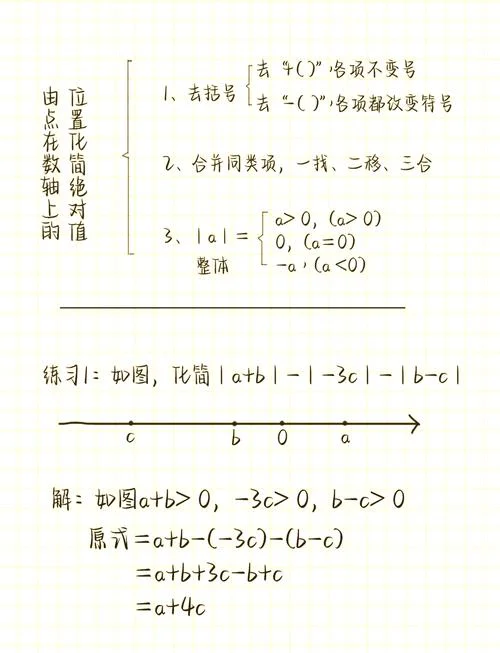 由点在数轴上的
位置化简绝对值
1、去括号
去“+( )”，各项不变号
去“-( )”，各项都改变符号
2、合并同类项，一找、二移、三合
3、|a|=
整体
a>0，(a>0)
0，(a=0)
-a，(a<0)
练习1：如图，化简|a+b|-|-3c|-|b-c|
c b 0 a
解：如图a+b>0，-3c>0，b-c>0
原式=a+b-(-3c)-(b-c)
=a+b+3c-b+c
=a+4c